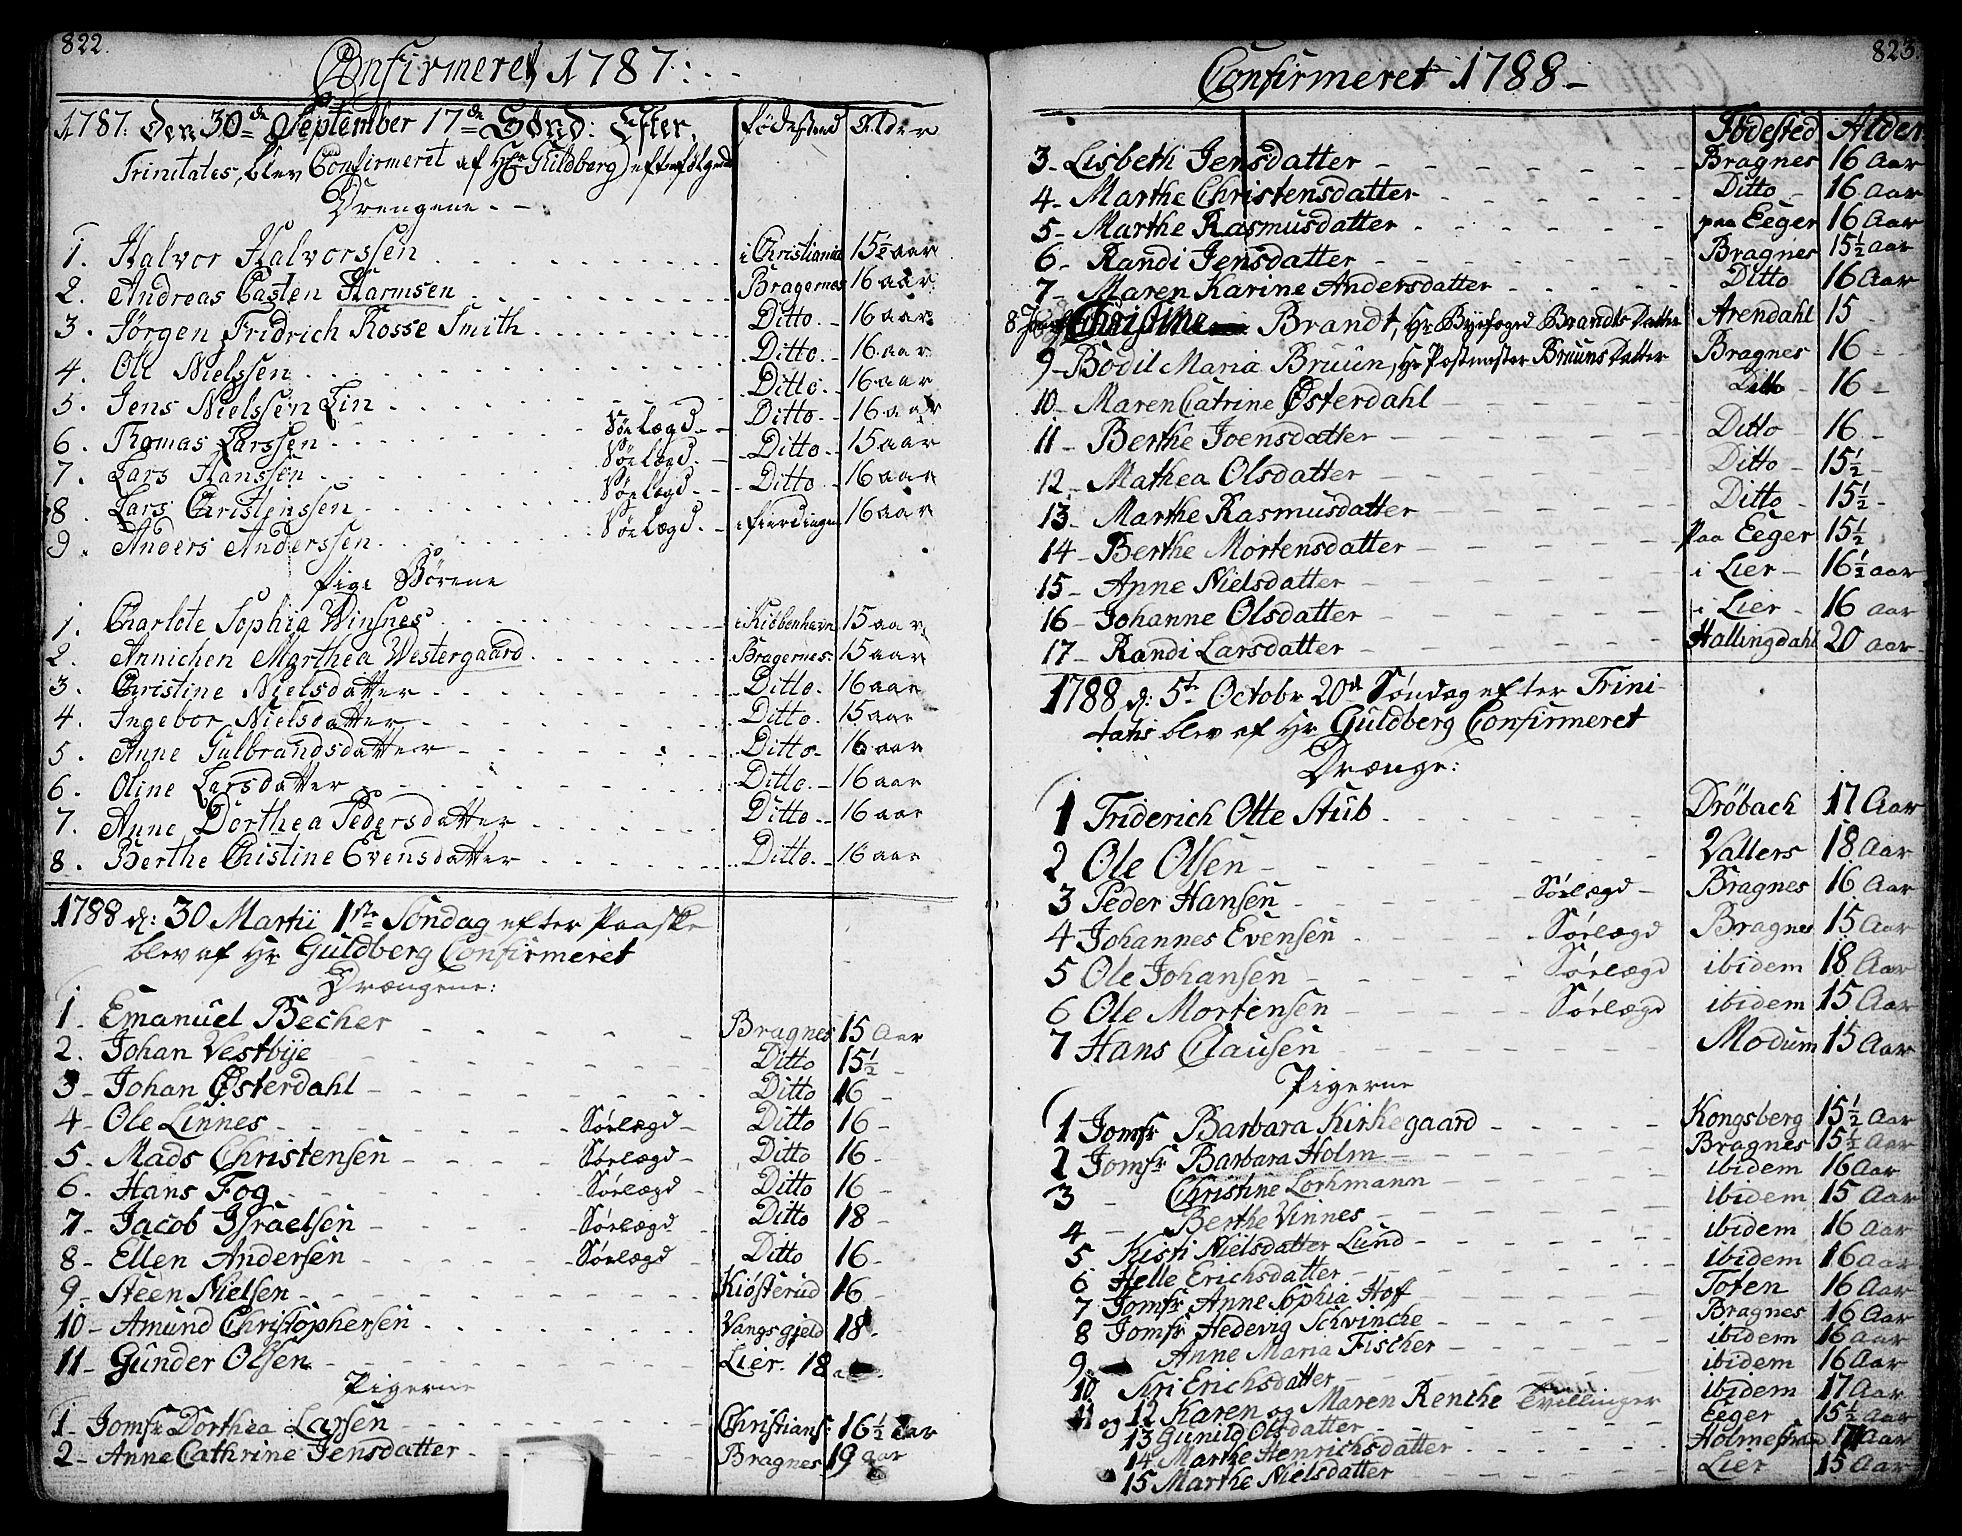 822.
Confirmeret 1787:
1787. den 30de September 17de Sönd: Efter Fødested Alder
Trinitates, blev Confirmeret af Hr Guldberg efterfølgende
Drengene.
1. Halvor Halvorssen i Christiania 15½ aar
2. Andreas Casten Harmsen Bragernes 16 aar
3. Jörgen Fridrich Rosse Smith Ditto 16 aar
4. Ole Nielssen Ditto 16 aar
5. Jens Nielssen Lin Ditto 16 aar
6. Thomas Larssen Söelægd Ditto 16 aar
7. Lars Hanssen Söelægd Ditto 15 aar
8. Lars Christenssen Söelægd Ditto 16 aar
9. Anders Anderssen Söelægd i fierdingen 16 aar
Pige Börene
1. Charlote Sophia Winsnes i Kiöbenhavn 15 aar
2. Annichen Marthea Westergaard Bragernes 15 aar
3. Christine Nielsdatter Ditto 16 aar
4. Ingebor Nielsdatter Ditto 15 aar
5. Anne Gulbrandsdatter Ditto 16 aar
6. Oline Larsdatter Ditto 16 aar
7. Anne Dorthea Pedersdatter Ditto 16 aar
8. Berthe Christine Evensdatter Ditto 16 aar
1788 d: 30 Martii 1ste Söndag efter Paaske
blev af Hr Guldberg Confirmeret
Drængene:
1. Emanuel Becher Bragnes 15 Aar
2. Johan Vestbye Ditto 15½
3 - Johan Østerdahl Ditto 16
4 - Ole Linnes Sörlægd Ditto 16
5 - Mads Christensen Sörlægd Ditto 16
6. Hans Fog Sörlægd Ditto 16
7 - Jacob Israelsen Sörlægd Ditto 18
8 - Ellen Andersen Sörlægd Ditto 16
9 - Steen Nielsen Kiösterud 16
10 - Amund Christophersen Vangs gield 18
11 - Gunder Olsen Lier 18
Pigerne
1 - Jomfr Dorthea Larsen Christians: 16½ Aar
2 - Anne Cathrine Jensdatter Bragnes 19 aar
823.
Confirmeret 1788 -
Födested Alder
3 - Lisbeth Jensdatter Bragnes 16 Aar
4 - Marthe Christensdatter Ditto 16 Aar
5 - Marthe Rasmusdatter paa Eeger 16 Aar
6 - Randi Jensdatter Bragnes 15½ aar
7 - Maren Karine Andersdatter Ditto 16 Aar
8 - Christine Brandt, Hr Byefoged Brandts Datter Arendahl 15
9 - Bodil Maria Bruun, Hr Postmester Bruuns Datter Bragnes 16
10 - Maren Catrine Østerdahl Ditto 16
11 - Berthe Joensdatter Ditto 16
12 - Mathea Olsdatter Ditto 15½
13 - Marthe Rasmusdatter Ditto 15½
14 - Berthe Mortensdatter paa Eeger 15½
15 - Anne Nielsdatter i Lier 16½ aar
16 - Johanne Olsdatter i Lier 16 aar
17 - Randi Larsdatter Hallingdahl 20 aar
1788 d: 5te Octobr 20de Söndag efter Trini-
tatis blev af Hr Guldberg Confirmeret
Drænge:
1 Friderich Otte Stub Dröbach 17 Aar
2 Ole Olsen Vallers 18 Aar
3 Peder Hansen Sörlægd Bragnes 16 Aar
4 Johannes Evensen Sörlægd Bragnes 15 Aar
5 Ole Johansen Sörlægd ibidem 18 Aar
6 Ole Mortensen Sörlægd ibidem 15 Aar
7 Hans Clausen Modum 15 Aar
Pigerne
1 Jomfr Barbara Kirkegaard Kongsberg 15½ Aar
2 Jomfr Barbara Holm Bragnes 15½ Aar
3 - Christine Lochmann ibidem 16 Aar
4 - Berthe Vinnes ibidem 15 Aar
5 Kisti Nielsdatter Lund ibidem 16 Aar
6 Helle Erichsdatter ibidem 16 Aar
7 Jomfr Anne Sophia Hoff Toten 16 Aar
8 Jomfr Hedevig Schvinche Bragnes 16 Aar
9. Anne Maria Fischer ibidem 16 Aar
10 Siri Erichsdatter ibidem 16 Aar
11 og 12 Karen og Maren Renche Tvillinger ibidem 17 Aar
13 Gunild Olsdatter Eeger 15½ Aar
14 Marthe Henrichsdatter 17 Aar
15 Marthe Nielsdatter Lier 15 Aar